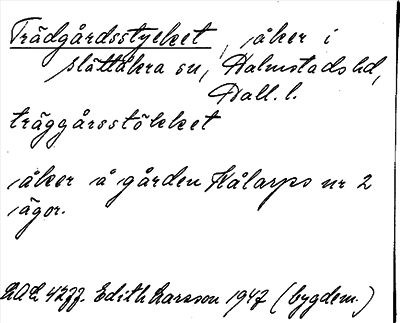 Trädgårdsstycket, åker i
Slättåkra sn, Halmstads hd,
Hall. l.
träggårsstökket
åker å gården Kålarps nr 2
ägor.
Edith Larsson 1947 (bygdem.)